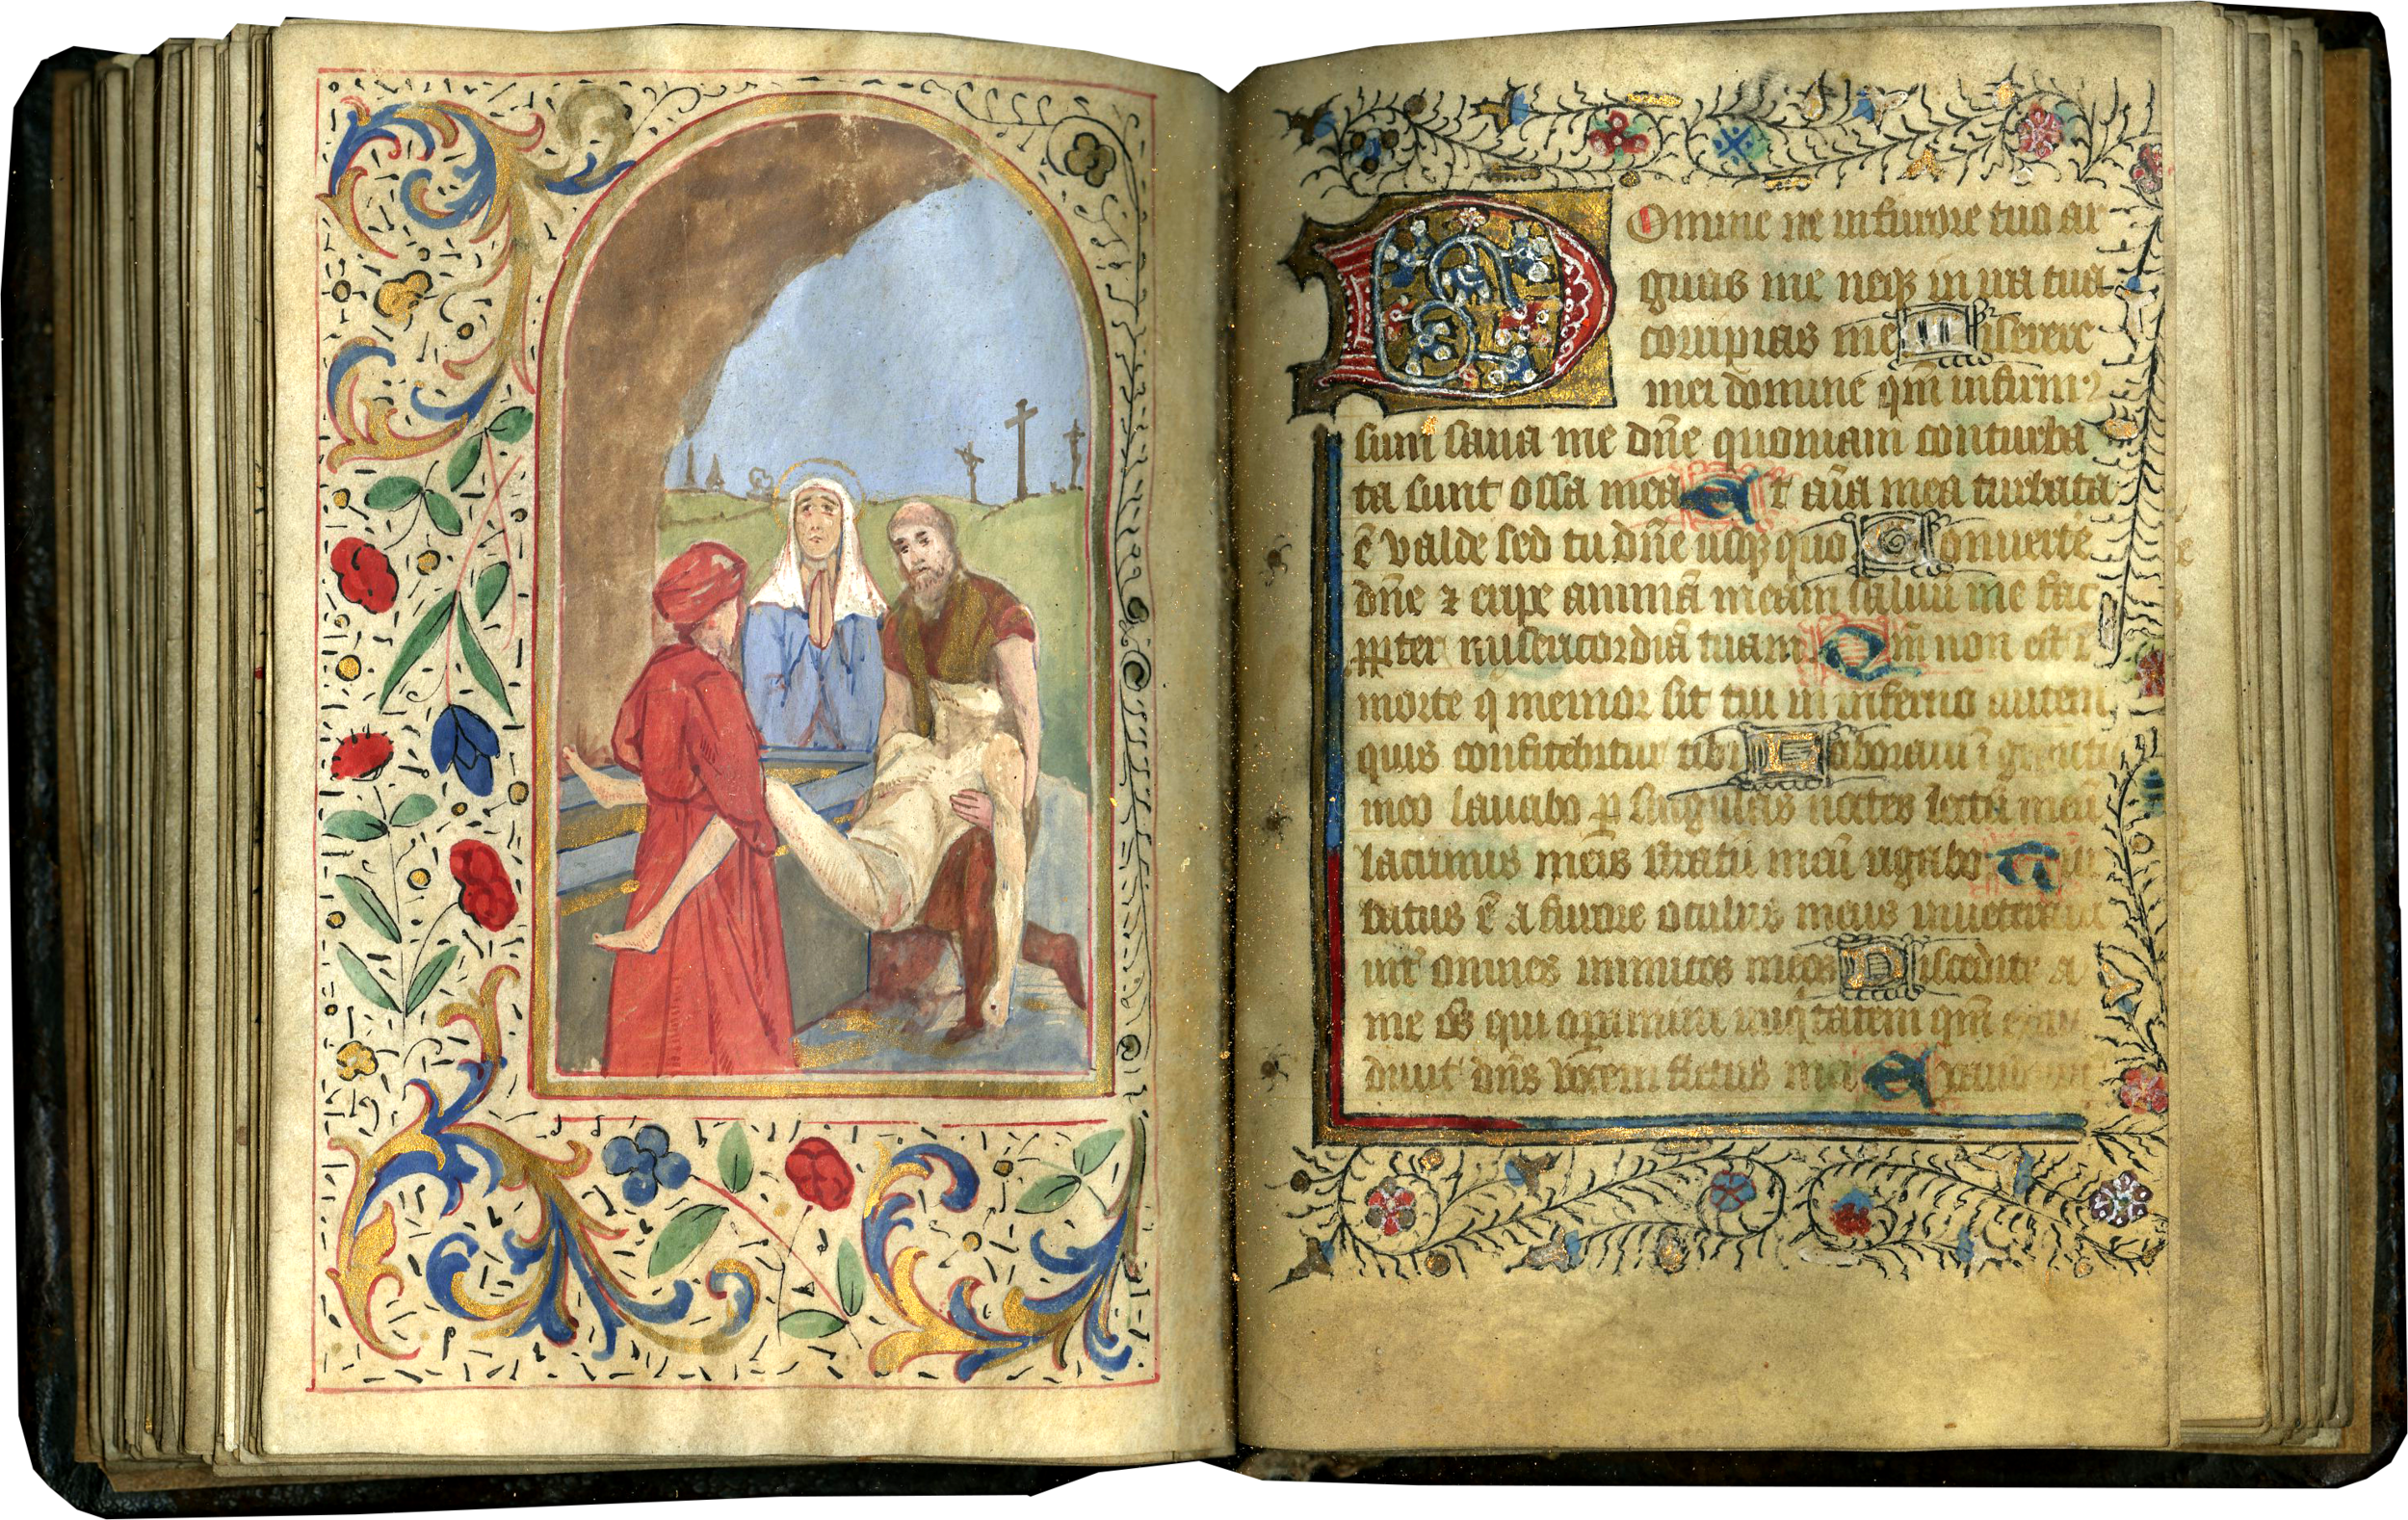 Domine ne in furore tuo ar
guas me neqȝ in ira tua
corripias me Miserere
mei domine qm̄ infirmꝰ
sum sana me dn̄e quoniam conturba
ta sunt ossa mea Et aīa mea turbata
ē valde sed tu dn̄e usqȝ quo Conuerte
dn̄e ⁊ eripe animā meam saluū me fac
ꝓpter misericordiā tuam Qm̄ non est ī
morte q memor sit tui in inferno autem
quis confitebitur tibi Laboraui ī gemitu
meo lauabo ꝑ singulas noctes lectū meū
lacrimis meis stratū meū rigabo Tur
batus ē a furore oculus meus inueteraui
int̄ omnes inimicos meos Discedite a
me oēs qui oꝑamini iniqͥtatem qm̄ exau
diuit dn̄s vocem fletus mei Exaudiuit